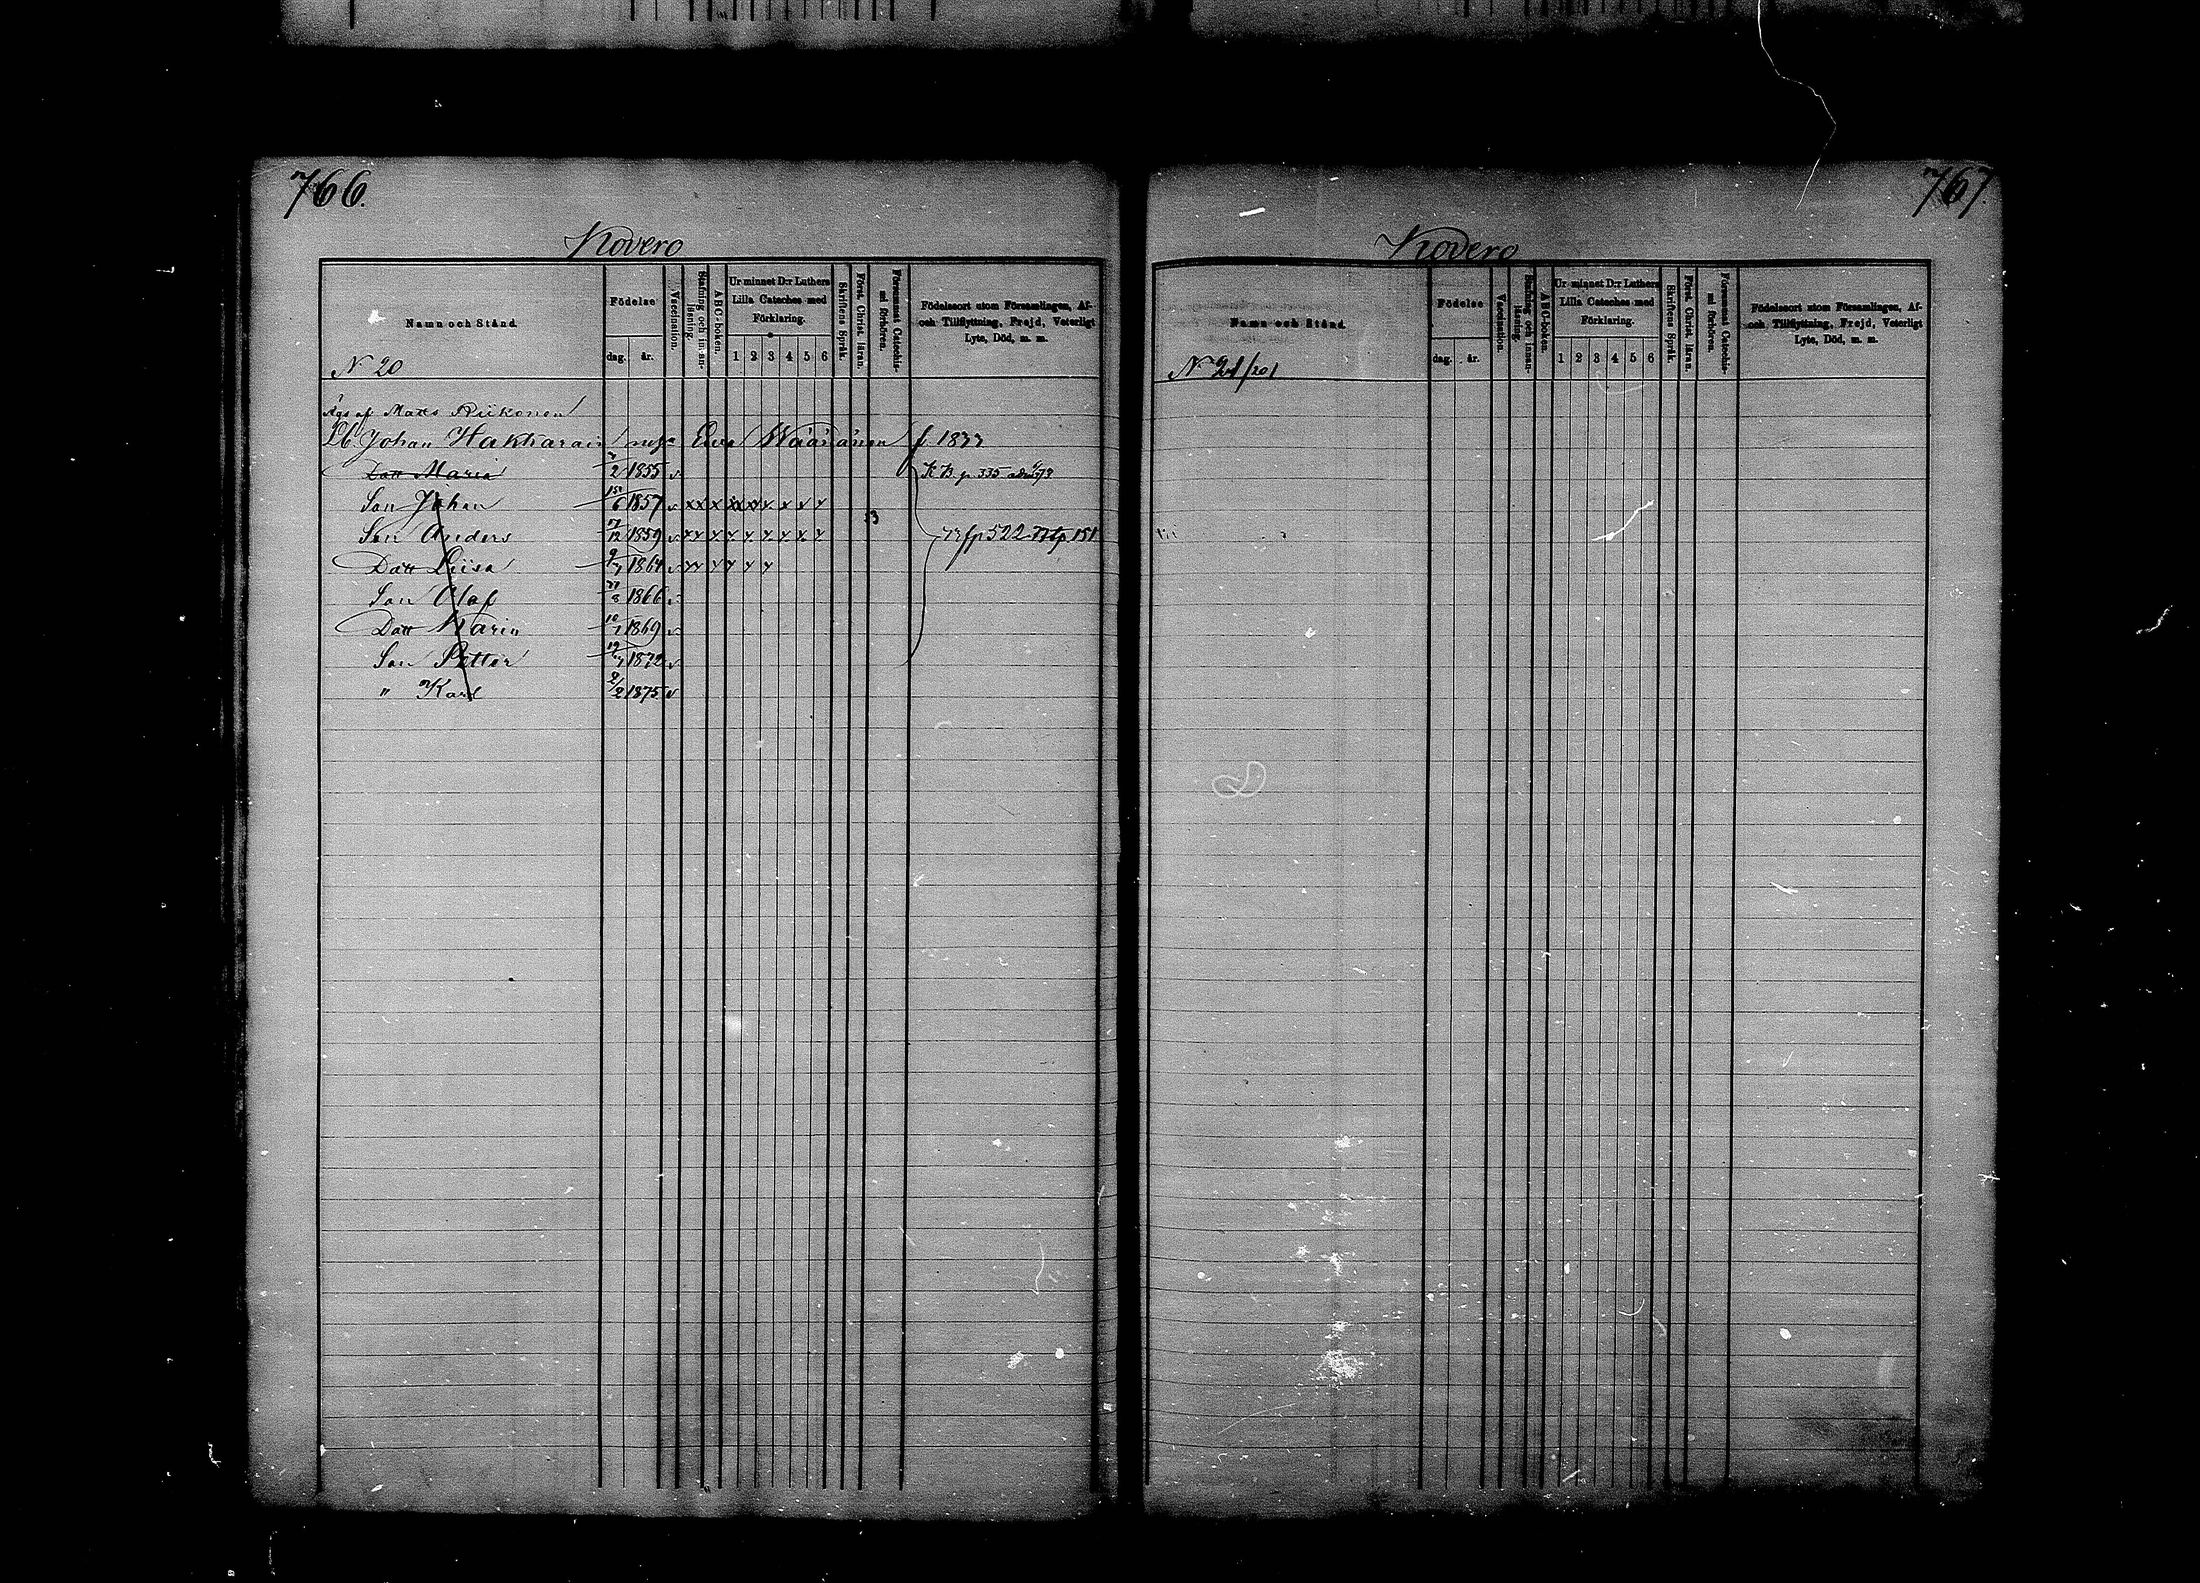 766.
Kovero
Namn och Stånd.
Födelse
dag. år.
Vaccination.
Stafning och innan-
läsning.
ABC-boken.
Ur minnet D:r Luthers
Lilla Cateches med
Förklaring.
1 2 3 4 5 6
Skriftens Språk.
Först. Christ. läran.
Försummat Catechis-
mi förhören.
Födelseort utom Församlingen, Af-
och Tillflyttning, Frejd, Veterligt
Lyte, Död, m. m.
N 20
Äges af Matts Riikonen
Johan Hakkarain Ewa Wäänänen f. 1833
Dott Maria 2 1855 v K B p 335
Son Johan 15/6 1857 v xx x xx xx x x x x
Son Anders /12 1859 v xx x x x x x x x
Dott Liisa 1864 v xx x x x x
fp 522 p 151
Son Olaf /8 1866 v
Dott Karin 10/1 1869 v
Son Petter 1872 v
" Karl 2/2 1875 v
767.
Kovero
Namn och Stånd.
Födelse
dag. år.
Vaccination.
Stafning och innan-
läsning.
ABC-boken.
Ur minnet D:r Luthers
Lilla Cateches med
Förklaring.
1 2 3 4 5 6
Skriftens Språk.
Först. Christ. läran.
Försummat Catechis-
mi förhören.
Födelseort utom Församlingen, Af-
och Tillflyttning, Frejd, Veterligt
Lyte, Död, m. m.
N 21/20